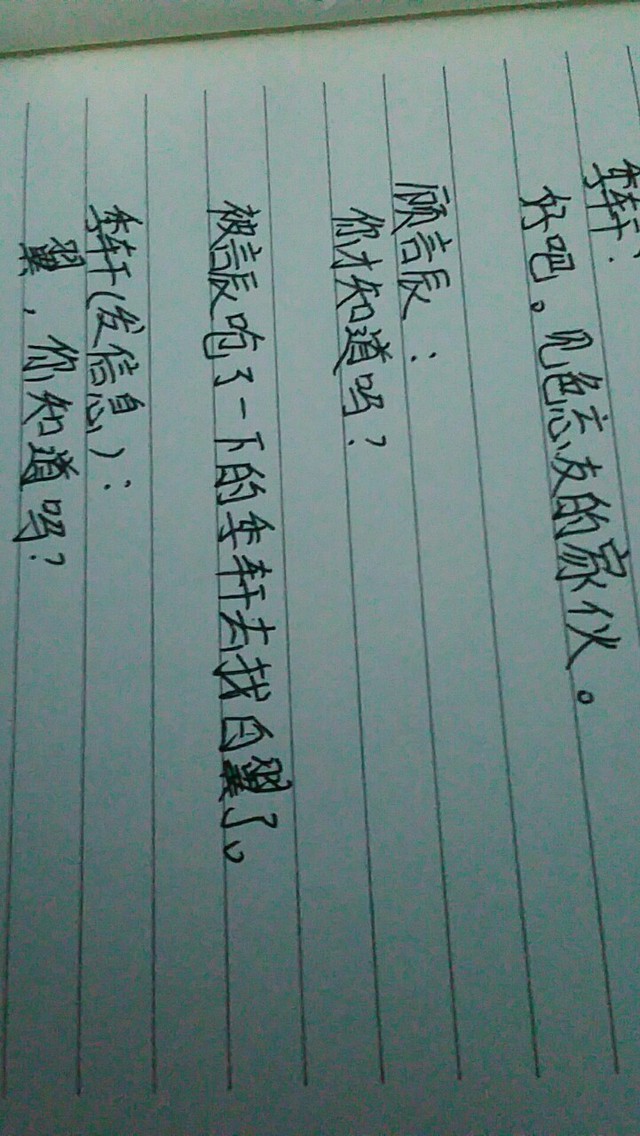 季轩:
好吧。见色忘友的家伙。
顾言辰:
你才知道吗?
被言辰呛了一下的季轩去找白翼了。
季轩(发信息):
翼,你知道吗?